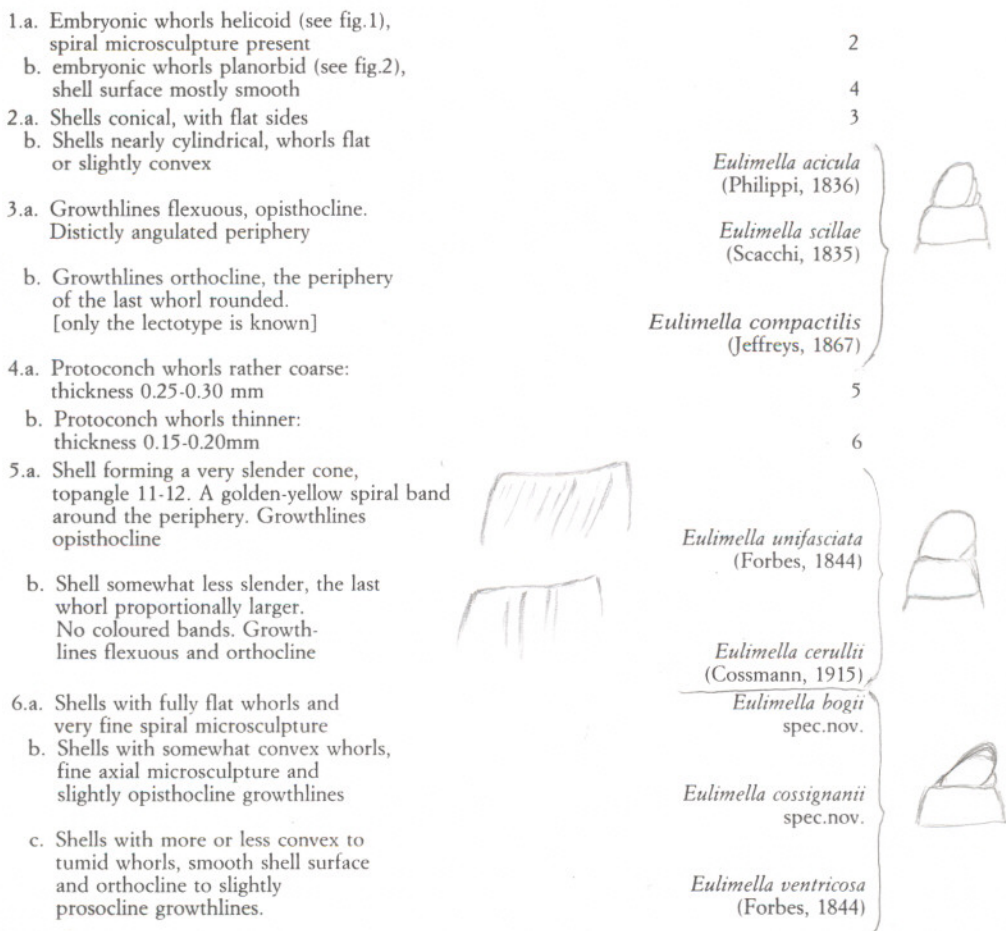 1.a. Embryonic whorls helicoid (see fig.1),
spiral microsculpture present 2
b. embryonic whorls planorbid (see fig.2),
shell surface mostly smooth 4
2.a. Shells conical, with flat sides 3
b. Shells nearly cylindrical, whorls flat
or slightly convex
Eulimella acicula
(Philippi, 1836)
3.a. Growthlines flexuous, opisthocline.
Distictly angulated periphery
Eulimella scillae
(Scacchi, 1835)
b. Growthlines orthocline, the periphery
of the last whorl rounded.
[only the lectotype is known]
Eulimella compactilis
(Jeffreys, 1867)
4.a. Protoconch whorls rather coarse:
thickness 0.25-0.30 mm 5
b. Protoconch whorls thinner:
thickness 0.15-0.20mm 6
5.a. Shell forming a very slender cone,
topangle 11-12. A golden-yellow spiral band
around the periphery. Growthlines
opisthocline
Eulimella unifasciata
(Forbes, 1844)
b. Shell somewhat less slender, the last
whorl proportionally larger.
No coloured bands. Growth-
lines flexuous and orthocline
Eulimella cerullii
(Cossmann, 1915)
6.a. Shells with fully flat whorls and
very fine spiral microsculpture
Eulimella bogii
spec.nov.
b. Shells with somewhat convex whorls,
fine axial microsculpture and
slightly opisthocline growthlines
Eulimella cossignanii
spec.nov.
c. Shells with more or less convex to
tumid whorls, smooth shell surface
and orthocline to slightly
prosocline growthlines.
Eulimella ventricosa
(Forbes, 1844)